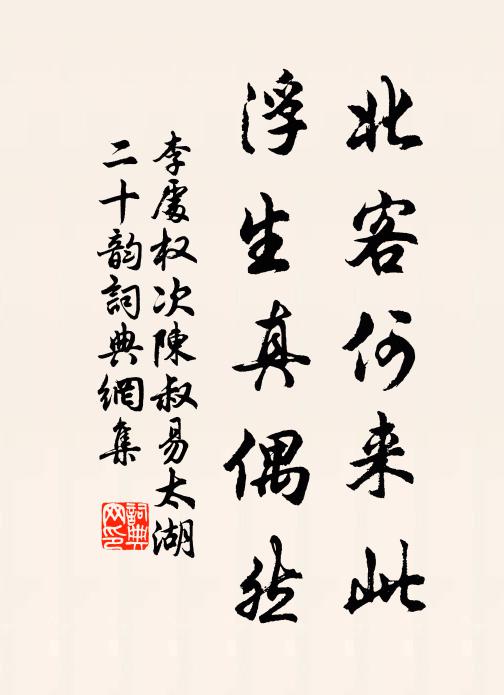 北客何来此
浮生真偶然
李處权次陳叔易太湖
二十韵詞典網集
詞典网印